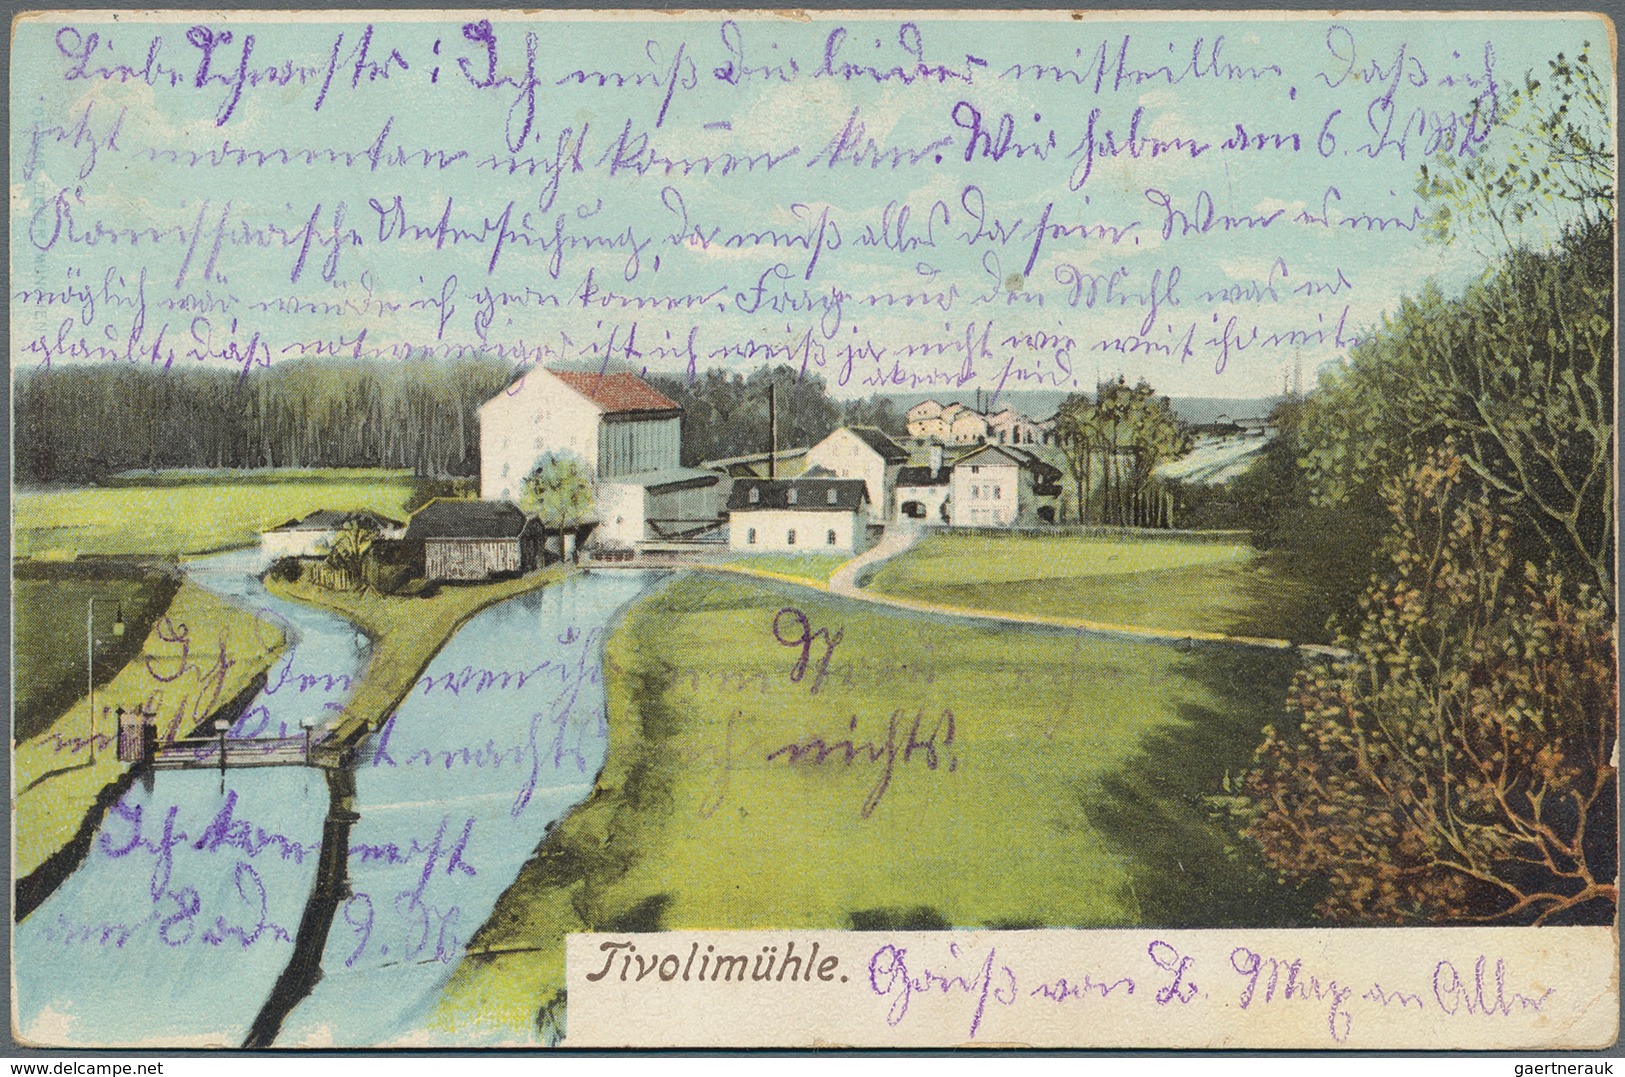 Liebe Schwester! Ich muß Dir leider mitteillen, daß ich
jetzt momentan nicht kom̄en kan. Wir haben am 6. ds Mt
Komissarische Untersuchung, da muß alles da sein. Wen es mir
möglich wär würde ich gern komen. Frag nur den Michl was er
glaubt, daß notwendiges ist, ich weiß ja nicht wie weit ihr mit
akern seid.
Ich wen ihr
nicht macht nichts.
Ich erst
am Ende
Tivolimühle. Gruß von L. Max an Alle
delcampe.net
gaertnerauk